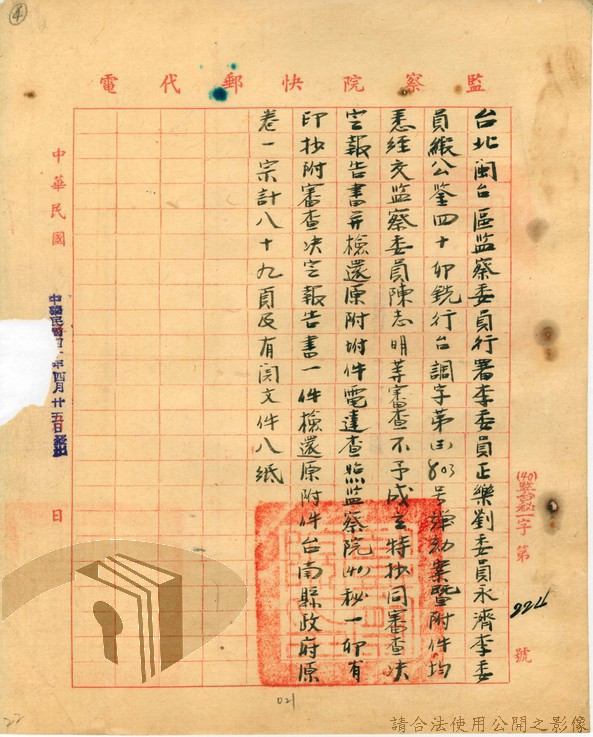 ④
監察院快郵代電
(40)監台秘一字第
224
號
台北閩台區監察委員行署李委員正樂劉委員永濟李委
員緞公鉴四十卯銑行台調字第(四)803号糾劾案暨附件均
悉經交監察委員陳志明等審查不予成立特抄同審查決
定報告書并檢還原附附件電達查照監察院(40)秘一卯有
印抄附審查決定報告書一件檢還原附件台南縣政府原
卷一宗計八十九頁及有関文件八紙
中華民國
中華民國四十年四月廿五日發出
日
021
22
請合法使用公開之影像